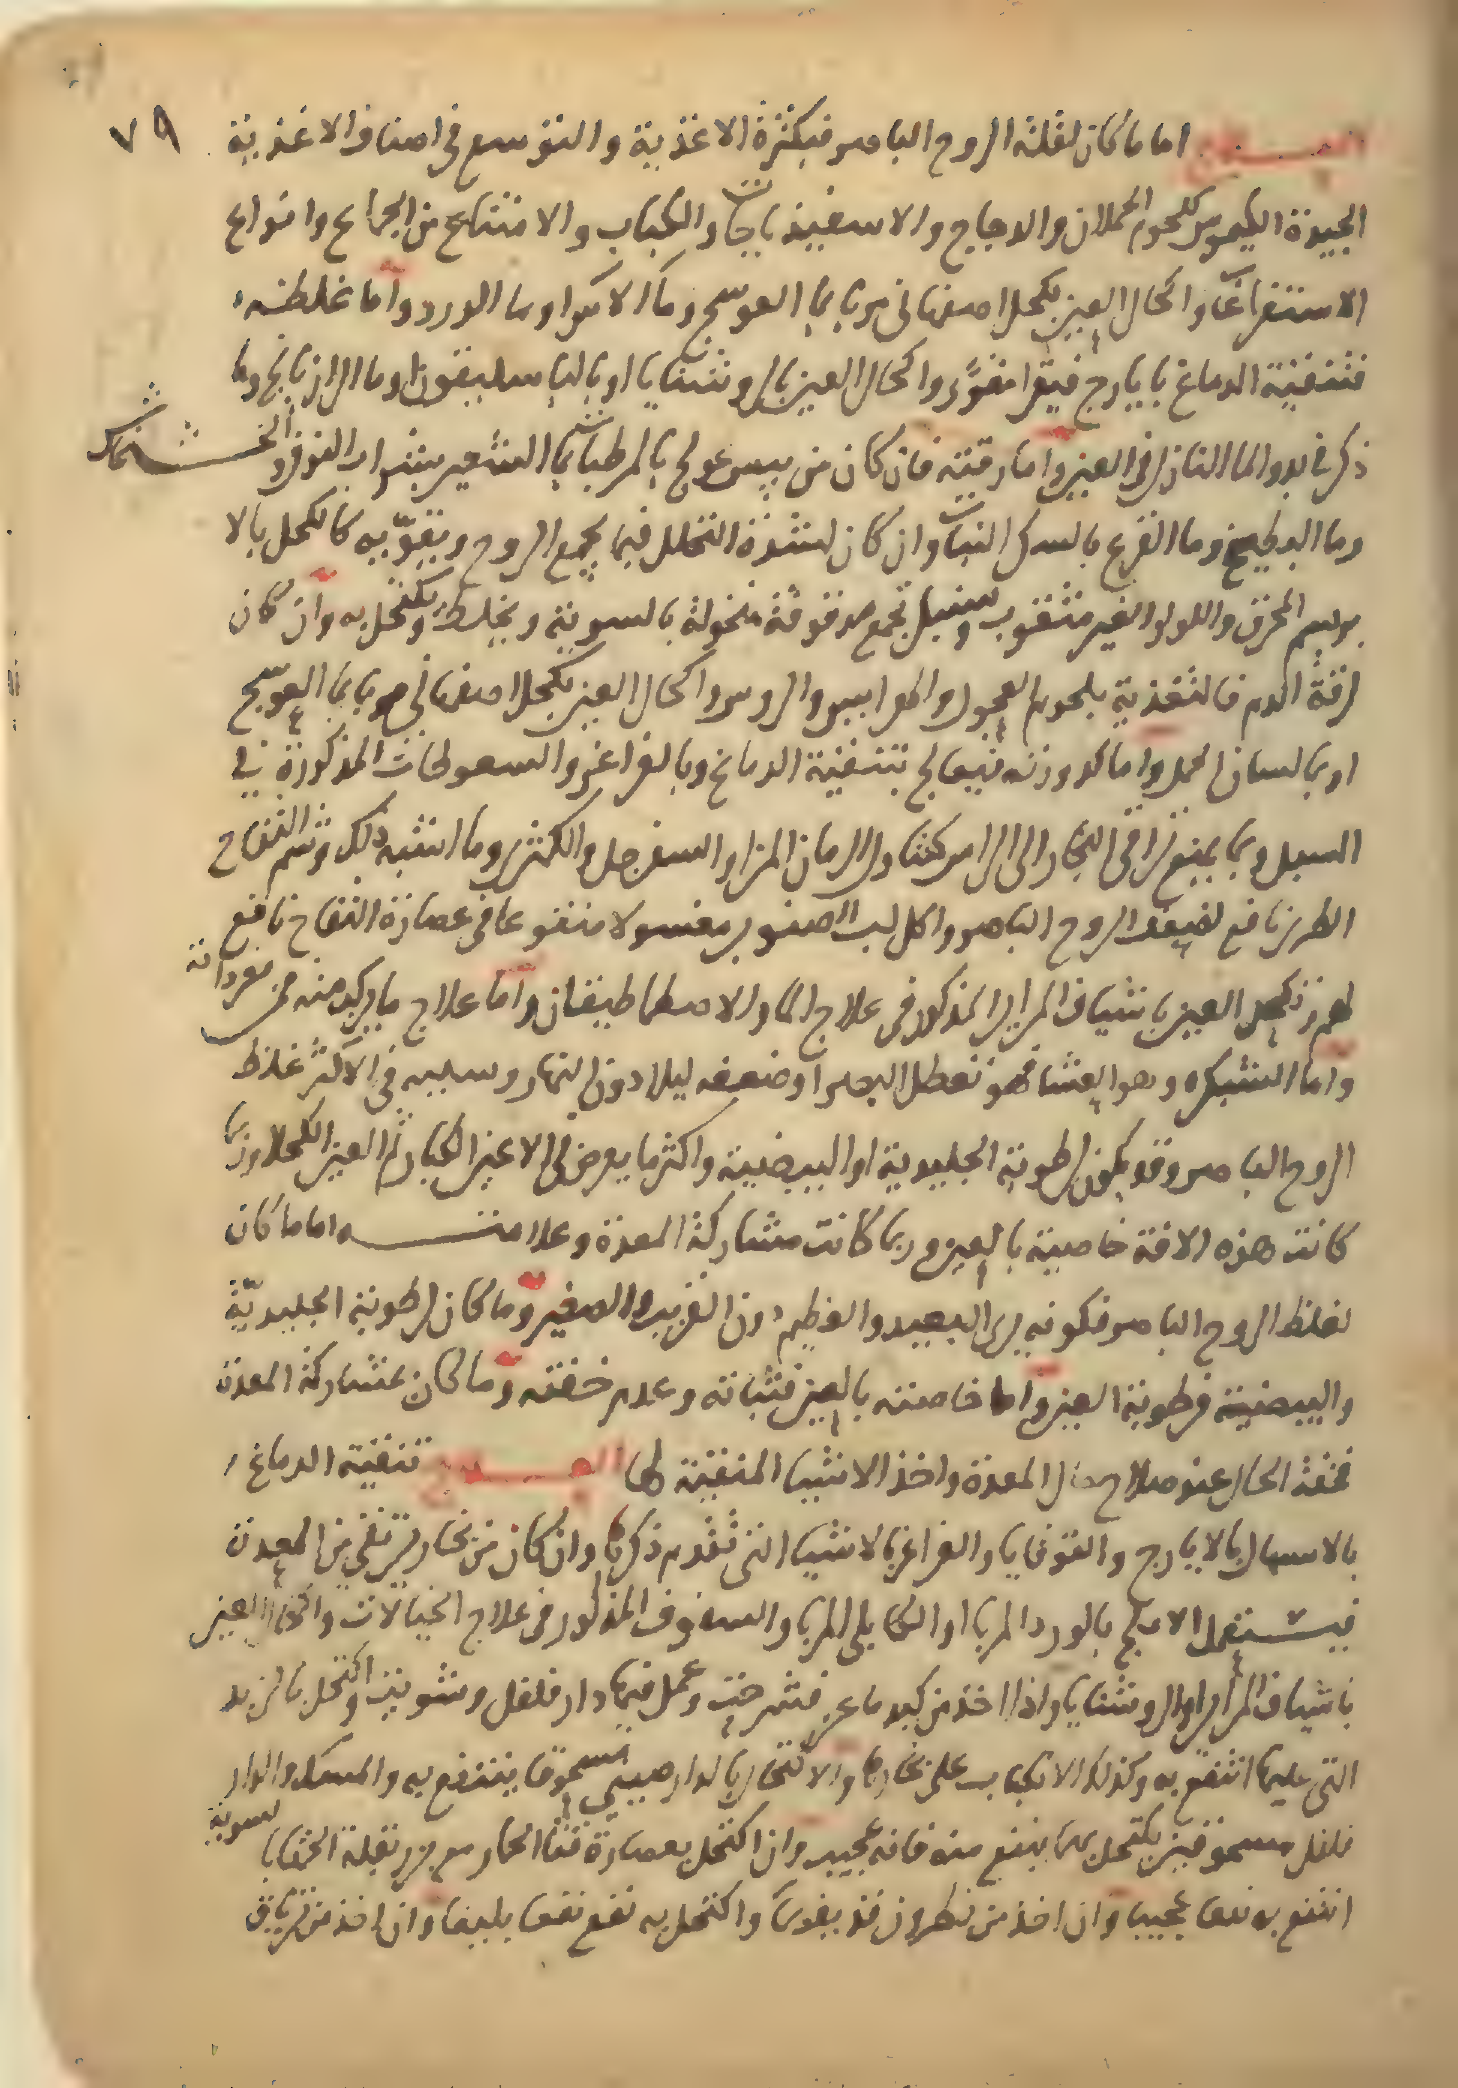 ٧٩
العلاج اما ما كان لقلة الروح الباصر فبكثرة الاغذية والتوسع في اصناف الاغذية
الجيدة الكيموس كلحوم الحملان والدجاج والاسفيذباجات والكباب والامتناع من الجماع وانواع
الاستفراغات واكحال العين بكحل اصفهاني مربا بما العوسج وما الاس او ما الورد واما غلظه
فتنقية الدماغ بايارج فيقرا مقوى واكحال العين بالروشنايا او بالباسليقون وما الرازيانج وما
ذكر في بدو الما النازل في العين واما رقته فان كان من يبس عولج بالمرطبات بما الشعير بشراب النوفر والخشخاش
وما البطيخ وما القرع بالسكر النبات وان كان لشدة التحلل فبما يجمع الروح ويقويه كالكحل بالا
بريسم المحرق واللولو الغير مثقوب وسنبل تجمع مدقوقة منخولة بالسوية ويخلط ويكتحل به وان كان
لرقة الدم فالتغذية بلحوم العجول والهرايس والروس واكحال العين بكحل اصفهاني مربا بما العوسج
او بما لسان الحمل واما كدورته فيعالج بتنقية الدماغ وبالغراغر والسعوطات المذكورة في
السبل وبما يمنع تراقي البخار الى الراس كتناول الرمان المز او السفرجل والكمثرى وما اشبه ذلك وشم التفاح
الطري نافع لضعف الروح الباصر واكل لب الصنوبر مغسولا منقوعا في عصارة التفاح نافع
لهم وتكحل العين باشياف المراير المذكور في علاج الما والاصطماطيقان واما علاج ما يركد منه في مفرداته
واما الشبكره وهو العشا فهو تعطل البصر او ضعفه ليلا دون النهار وسببه في الاكثر غلظ
الروح الباصر وقد يكون لرطوبة الجليدية او البيضية واكثر ما يعرض في الاعين الكبار ثم العين الكحلا وربما
كانت هذه الافة خاصية بالعين وربما كانت مشاركة المعدة وعلامته اما ما كان
لغلظ الروح الباصر فكونه يرى البعيد والعظيم دون القريب والصغير وما كان لرطوبة الجليدية
والبيضية فرطوبة العين واما خاصته بالعين فثباته وعدم خفته وما كان بمشاركة المعدة
فخفة الحال عند صلاح حال المعدة واخذ الاشيا المنقية لها العلاج تنقية الدماغ
بالاسهال بالايارج والقوقايا والغراغر بالاشيا التي تقدم ذكرها وان كان من بخار يترقى من المعدة
فيستعمل الاملج بالورد المربا او الكابلي المربا والسفوف المذكور في علاج الخيالات واكحال العين
باشياف المراير او الروشنايا واذا اخذ من كبد ماعز فشرحت وعمل فيها دار فلفل وشويت واكتحل بالزبد
التي عليها انتفع به وكذلك الانكباب على بخارها والاكتحال بالدارصيني مسحوقا ينتفع به والمسك والدار
فلفل مسحوقين يكتحل بهما ينفع منه فانه عجيب وان اكتحل بعصارة قثا الحمار مع بزر بقلة الحمقا بالسوية
انتفع به نفعا عجيبا وان اخذ من نطرون واكتحل به نفع نفعا بليغا وان اخذ من ترياق